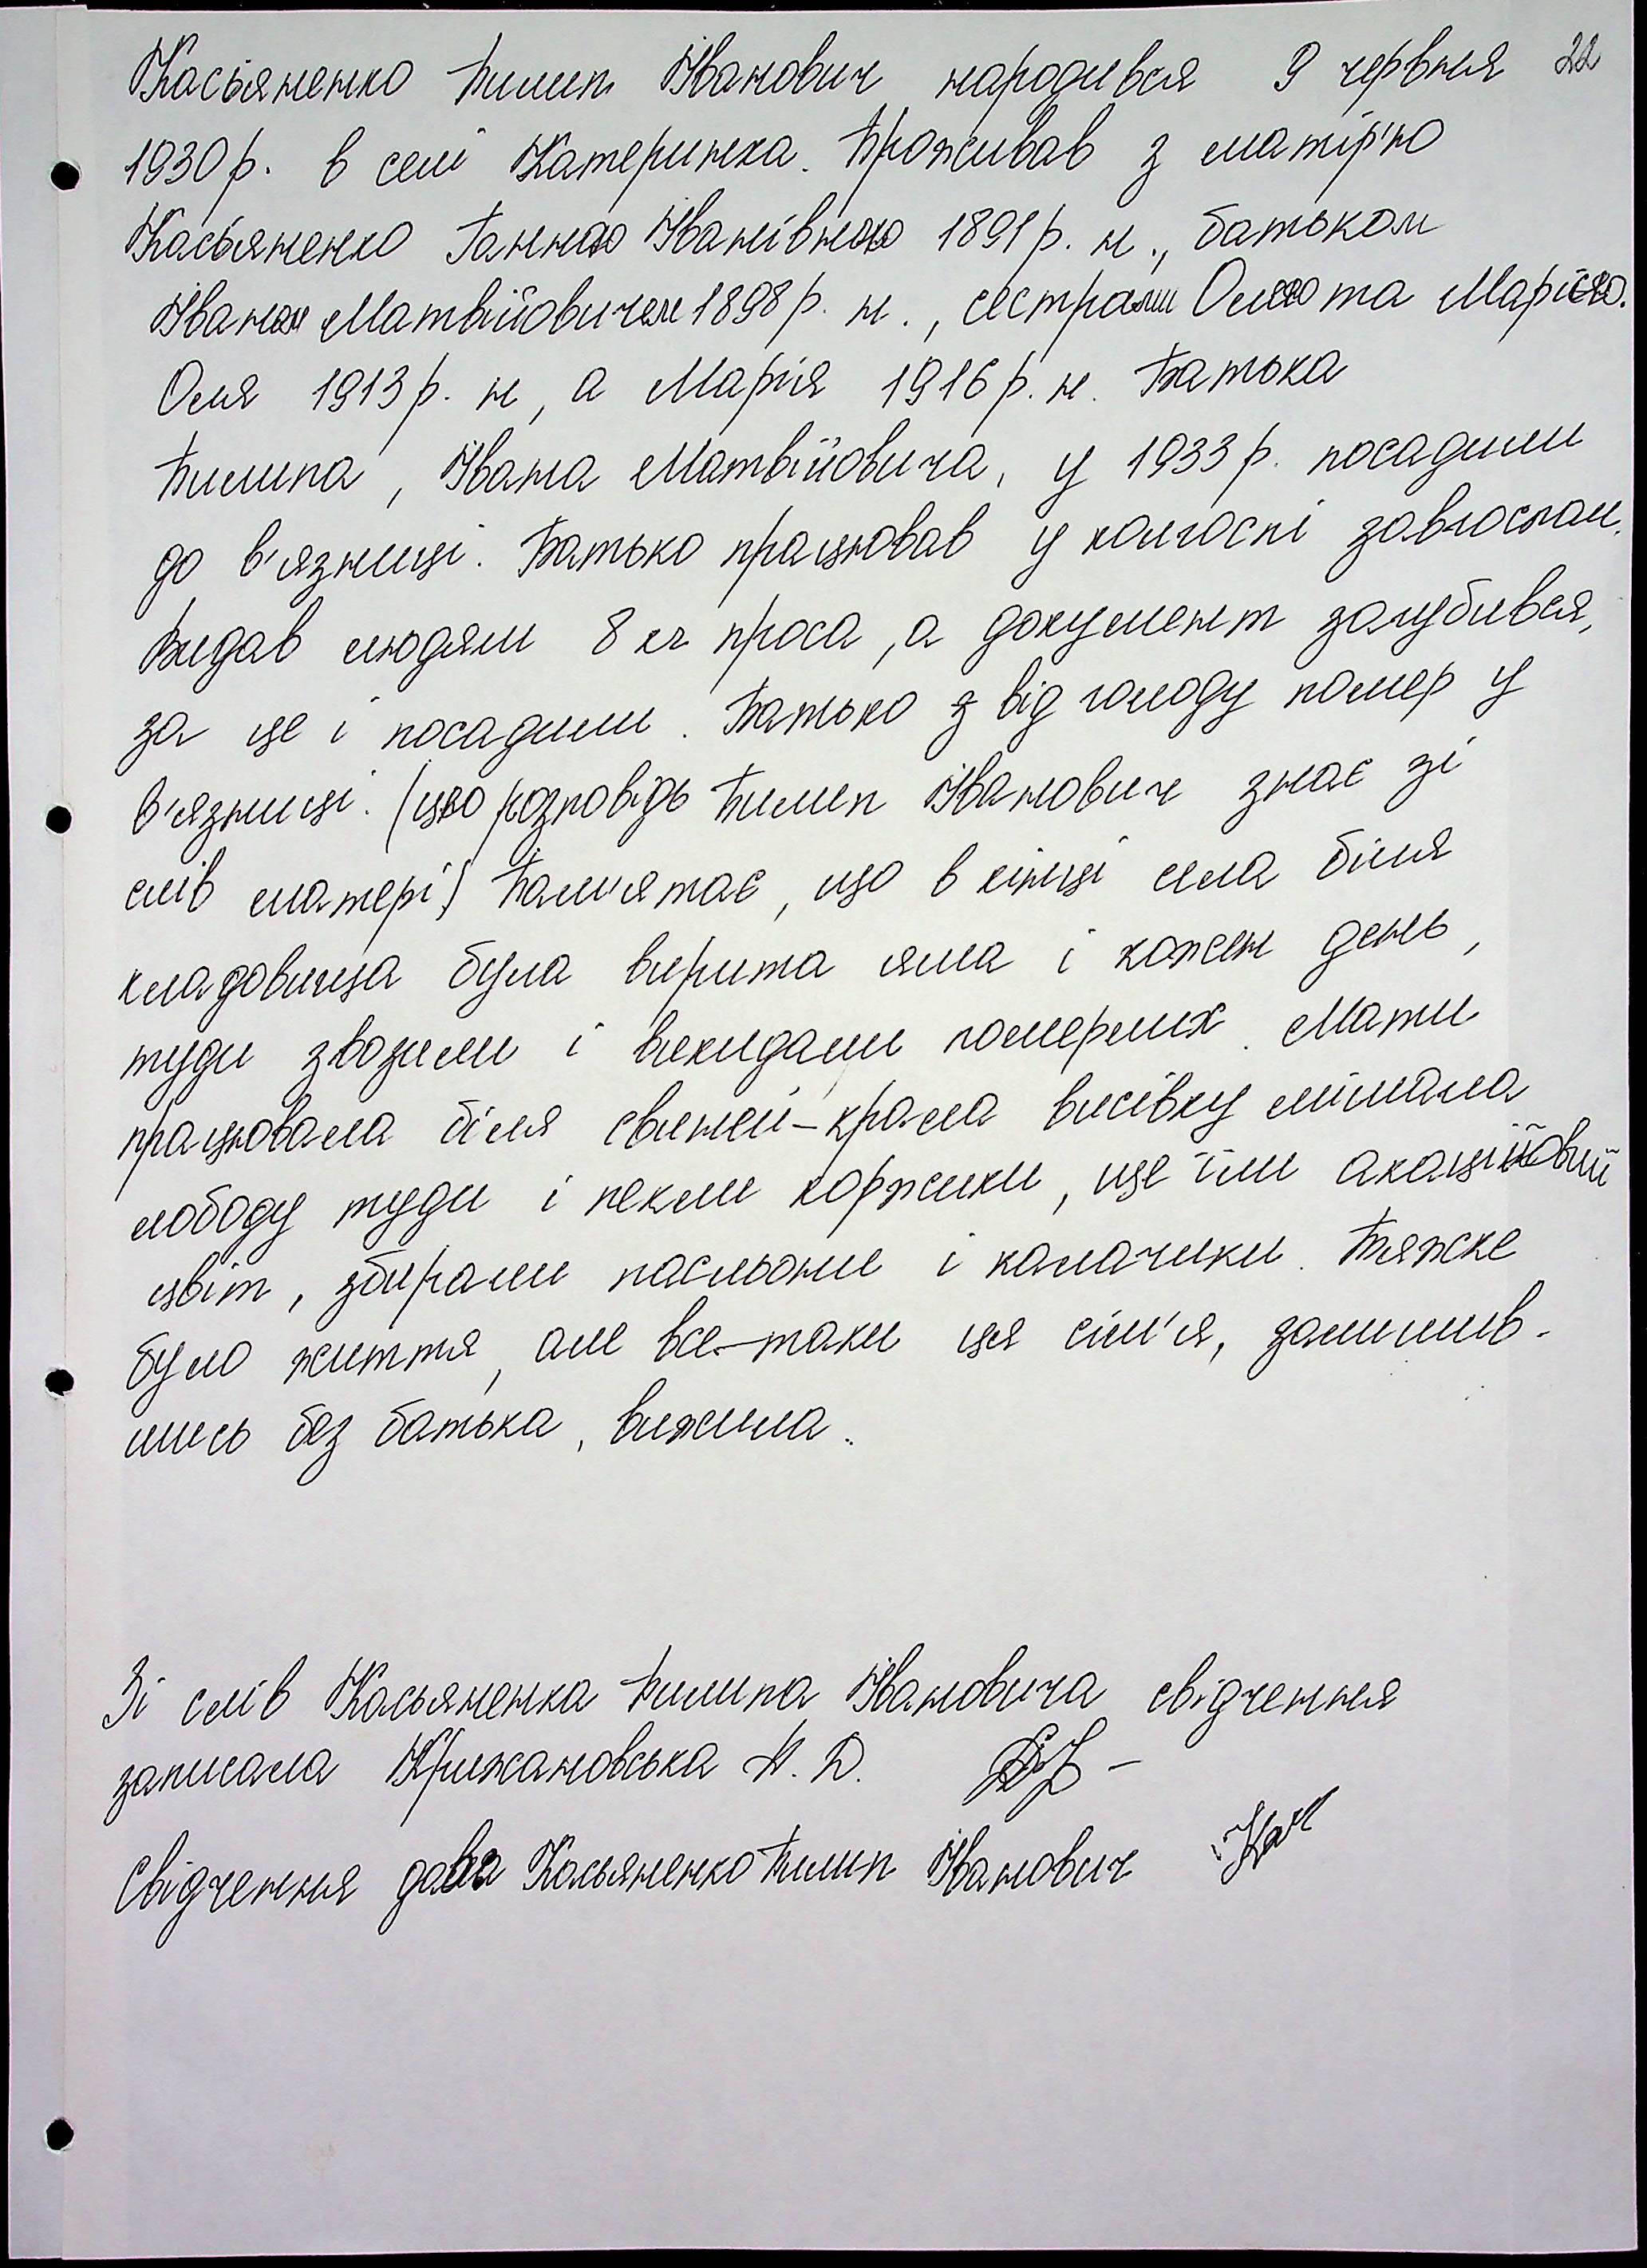 Касьяненко Пилип Іванович народився 9 червня 22
1930р. в селі Катеринка. Проживав з матір'ю
Касьяненко Ганною Іванівною 1891р. н., батьком
Іваном Матвійовичем 1898р. н., сестрами Олею та Марією.
Оля 1913р. н, а Марія 1916р. н. Батька
Пилипа, Івана Матвійовича, у 1933р. посадили
до в'язниці. Батько працював у колгоспі завгоспом.
Видав людям 8 кг проса, а документ загубився,
за це і посадили. Батько від голоду помер у
в'язниці. (цю розповідь Пилип Іванович знає зі
слів матері) Пам'ятає, що в кінці села біля
кладовища була вирита яма і кожен день,
туди звозили і викидали померлих. Мати
працювала біля свиней-крала висівку мішала
лободу туди і пекли коржики, ще їли акаційовий
цвіт, збирали пасльони і калачики. Тяжке
було життя, але все-таки ця сім'я, залишив-
шись без батька, вижила.
Зі слів Касьяненка Пилипа Івановича свідчення
записала Крижановська Н. Д.
Свідчення дав Касьяненко Пилип Іванович